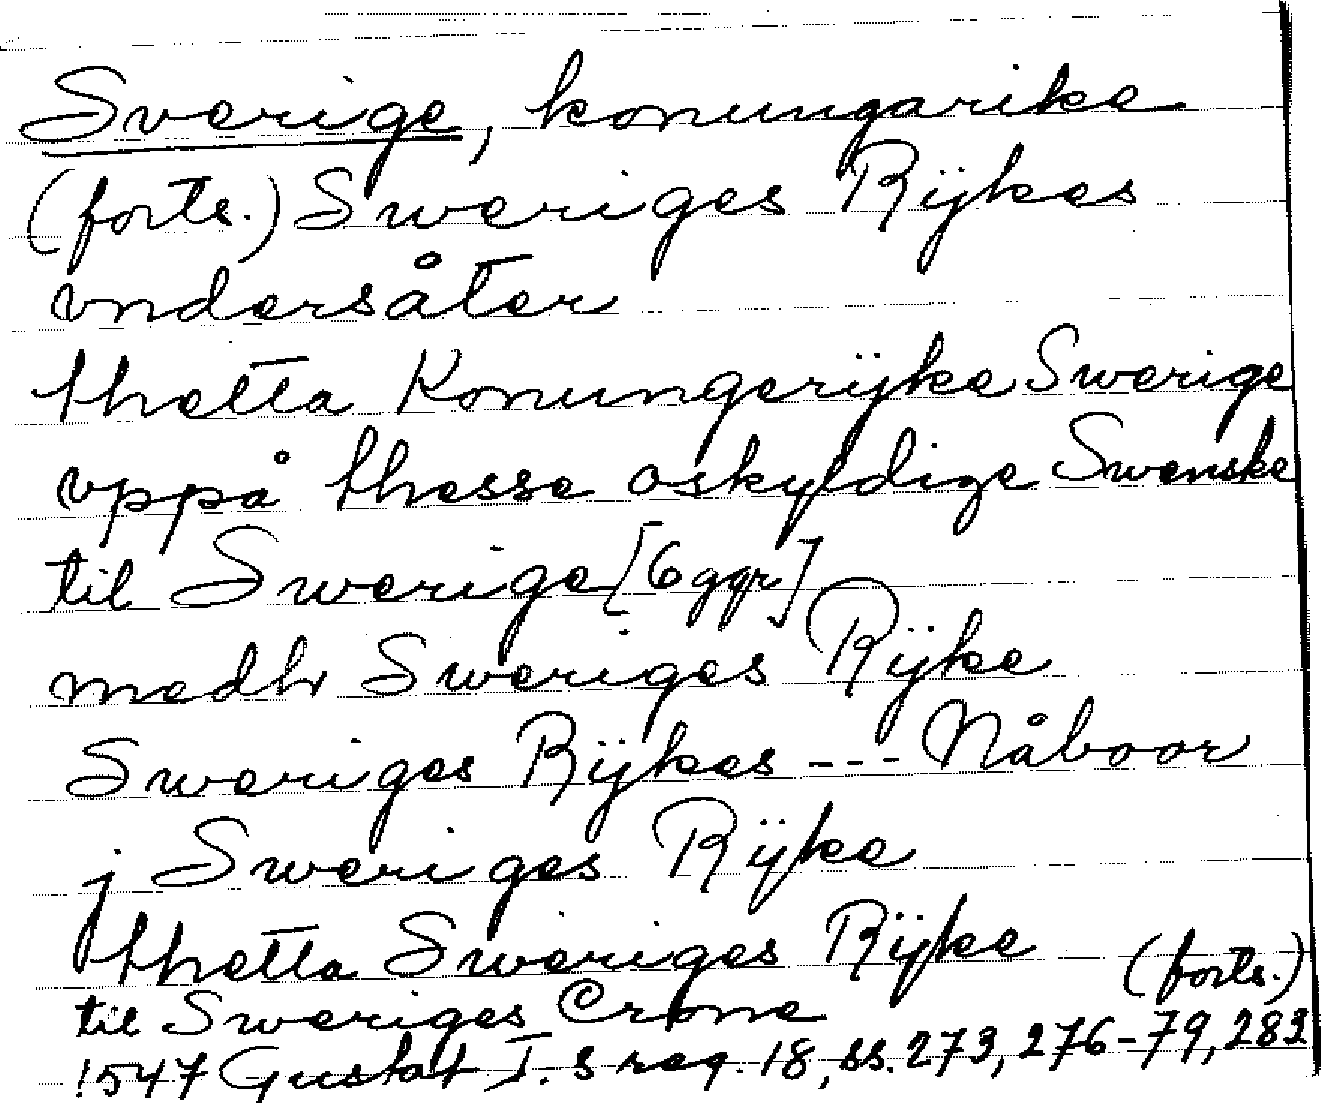 Sverige, konungarike
(forts.) Sweriges Rijkes
vndersåter
thetta Konungerijke Swerige
vppå thesse oskyldige Swenske
til Swerige [6 ggr]
medh Sweriges Rijke
Sweriges Rijkes --- Nåboor
j Sweriges Rijke
thetta Sweriges Rijke (forts.)
til Sweriges Crone
1547 Gustaf I. s reg. 18, ss. 273, 276-79, 283